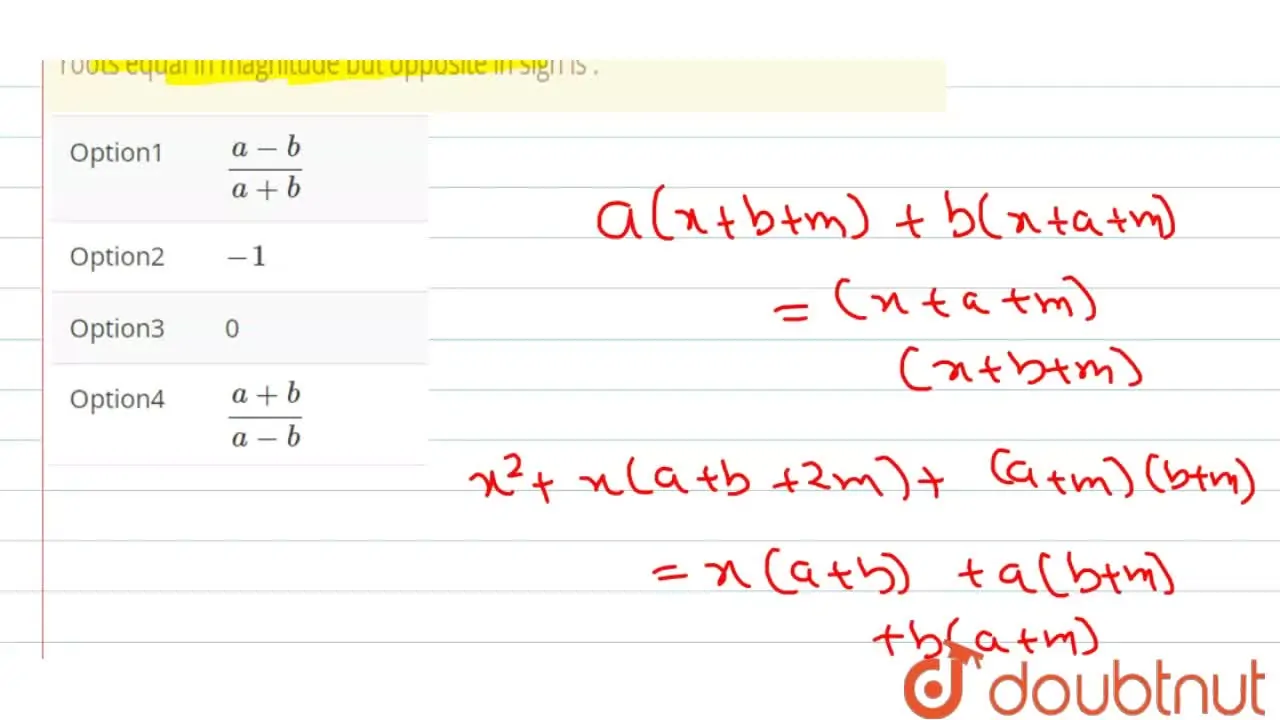 roots equal in magnitude but opposite in sign is .
Option1 a − b / a + b
Option2 −1
Option3 0
Option4 a + b / a − b
a(x+b+m) + b(x+a+m)
= (x+a+m)
(x+b+m)
x² + x(a+b+2m) + (a+m)(b+m)
= x(a+b) + a(b+m)
+b(a+m)
doubtnut